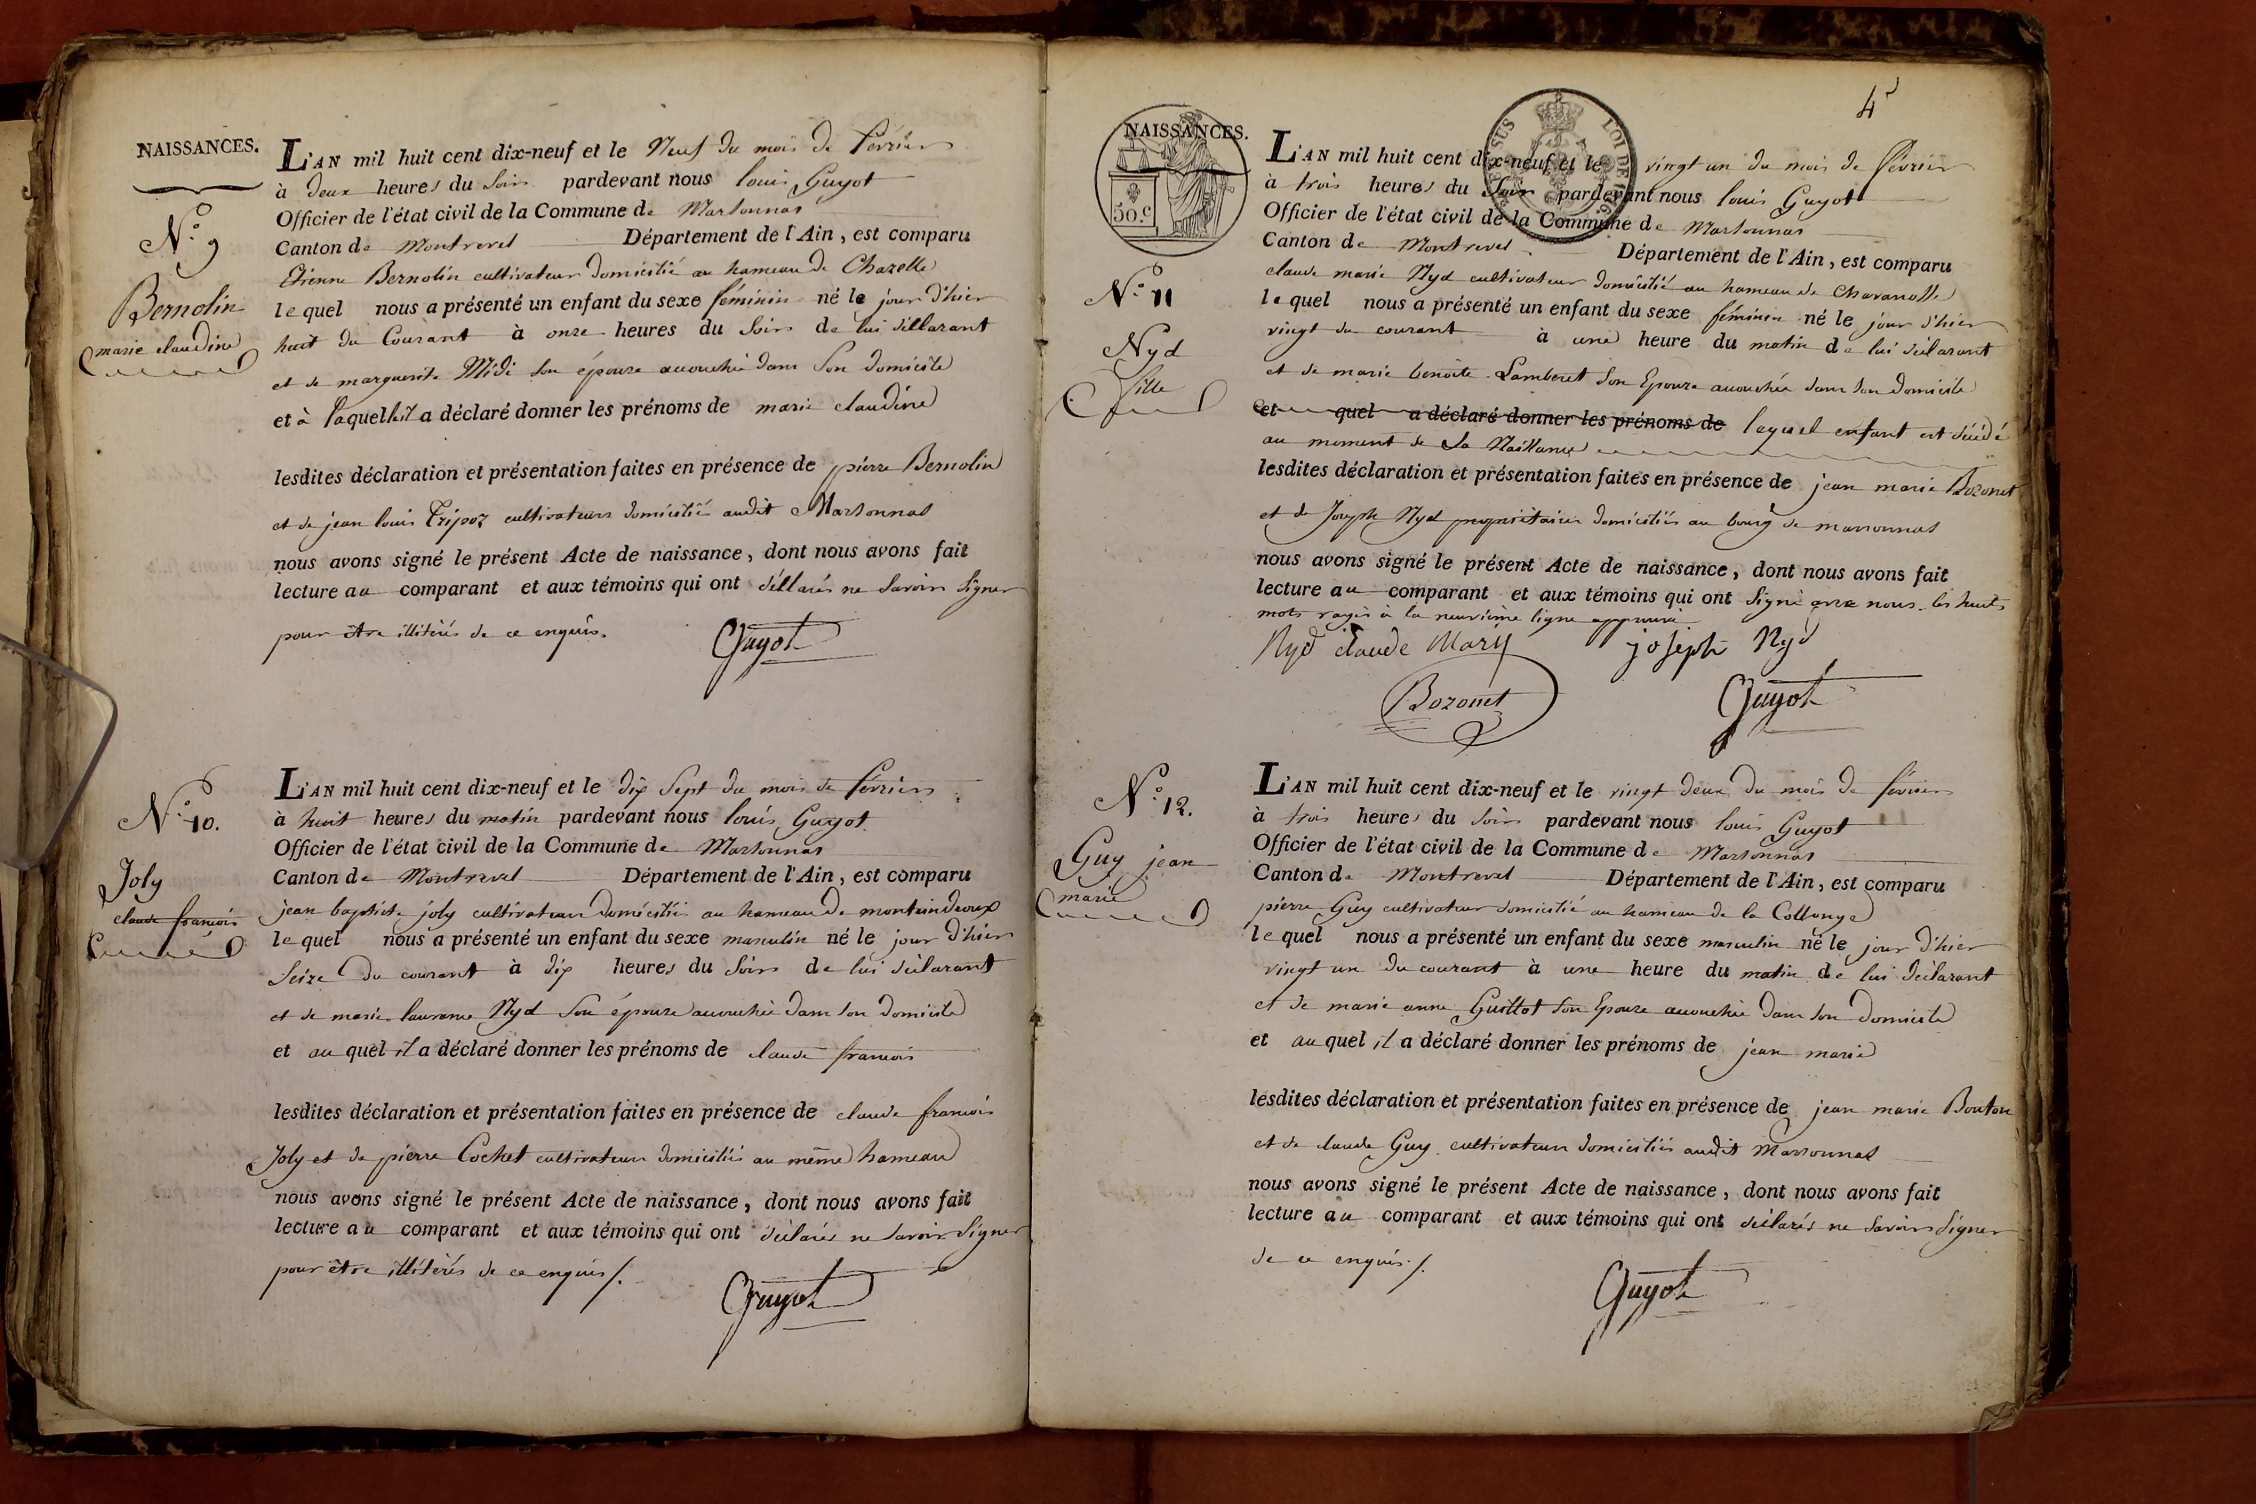 NAISSANCES.
N.º 9
Bernolin
marie claudine
L'AN mil huit cent dix-neuf et le Neuf du mois de février
à deux heures du soir pardevant nous louis Guyot
Officier de l'état civil de la Commune de Marsonnas
Canton de Montrevel Département de l'Ain, est comparu
Etienne Bernolin cultivateur domicilié au hameau de Chazelle
lequel nous a présenté un enfant du sexe féminin né le jour d'hier
huit du Courant à onze heures du soir de lui déllarant
et de marguerite Midi son épouse accouchée dans son domicile
et à laquelle il a déclaré donner les prénoms de marie claudine
lesdites déclaration et présentation faites en présence de pierre Bernolin
et de jean louis Tripoz cultivateurs domiciliés audit Marsonnas
nous avons signé le présent Acte de naissance, dont nous avons fait
lecture au comparant et aux témoins qui ont déllarés ne savoir signer
pour être illitérés de ce enquis.
Guyot
N.º 10.
Joly
claude francois
L'AN mil huit cent dix-neuf et le dix sept du mois de février
à huit heures du matin pardevant nous louis Guyot
Officier de l'état civil de la Commune de Marsonnas
Canton de Montrevel Département de l'Ain, est comparu
jean baptiste joly cultivateur domicilié au hameau de
lequel nous a présenté un enfant du sexe masculin né le jour d'hier
seize du courant à dix heures du soir de lui déclarant
et de marie laurence Nyd son épouse accouchée dans son domicile
et au quel il a déclaré donner les prénoms de claude francois
lesdites déclaration et présentation faites en présence de claude francois
Joly et de pierre Cochet cultivateurs domiciliés au même hameau
nous avons signé le présent Acte de naissance, dont nous avons fait
lecture au comparant et aux témoins qui ont déclarés ne savoir signer
pour être illitérés de ce enquis /.
Guyot
4
NAISSANCES.
50.c
LOI DE
N.º 11
Nyd
fille
L'AN mil huit cent dix-neuf et le vingt un du mois de février
à trois heures du soir pardevant nous louis Guyot
Officier de l'état civil de la Commune de Marsonnas
Canton de Montrevel Département de l'Ain, est comparu
claude marie Nyd cultivateur domicilié au hameau de Chavanolle
lequel nous a présenté un enfant du sexe féminin né le jour d'hier
vingt du courant à une heure du matin de lui déclarant
et de marie benoite Lamberet son Epouse accouchée dans son domicile
et quel a déclaré donner les prénoms de lequel enfant est décédé
au moment de sa Naissance
lesdites déclaration et présentation faites en présence de jean marie Bozonet
et de Joseph Nyd propriétaires domiciliés au bourg de marsonnas
nous avons signé le présent Acte de naissance, dont nous avons fait
lecture au comparant et aux témoins qui ont signé avec nous. les huits
mots rayés à la neuvième ligne approuvé
Nyd claude Mary joseph Nyd
Bozonet Guyot
N.º 12.
Guy jean
marie
L'AN mil huit cent dix-neuf et le vingt deux du mois de février
à trois heures du soir pardevant nous louis Guyot
Officier de l'état civil de la Commune de Marsonnas
Canton de Montrevel Département de l'Ain, est comparu
pierre Guy cultivateur domicilié au hameau de la Collonge
lequel nous a présenté un enfant du sexe masculin né le jour d'hier
vingt un du courant à une heure du matin de lui déclarant
et de marie anne Guillot son Epouse accouchée dans son domicile
et au quel il a déclaré donner les prénoms de jean marie
lesdites déclaration et présentation faites en présence de jean marie Bouton
et de claude Guy cultivateurs domiciliés audit Marsonnas
nous avons signé le présent Acte de naissance, dont nous avons fait
lecture au comparant et aux témoins qui ont déclarés ne savoir signer
de ce enquis /.
Guyot